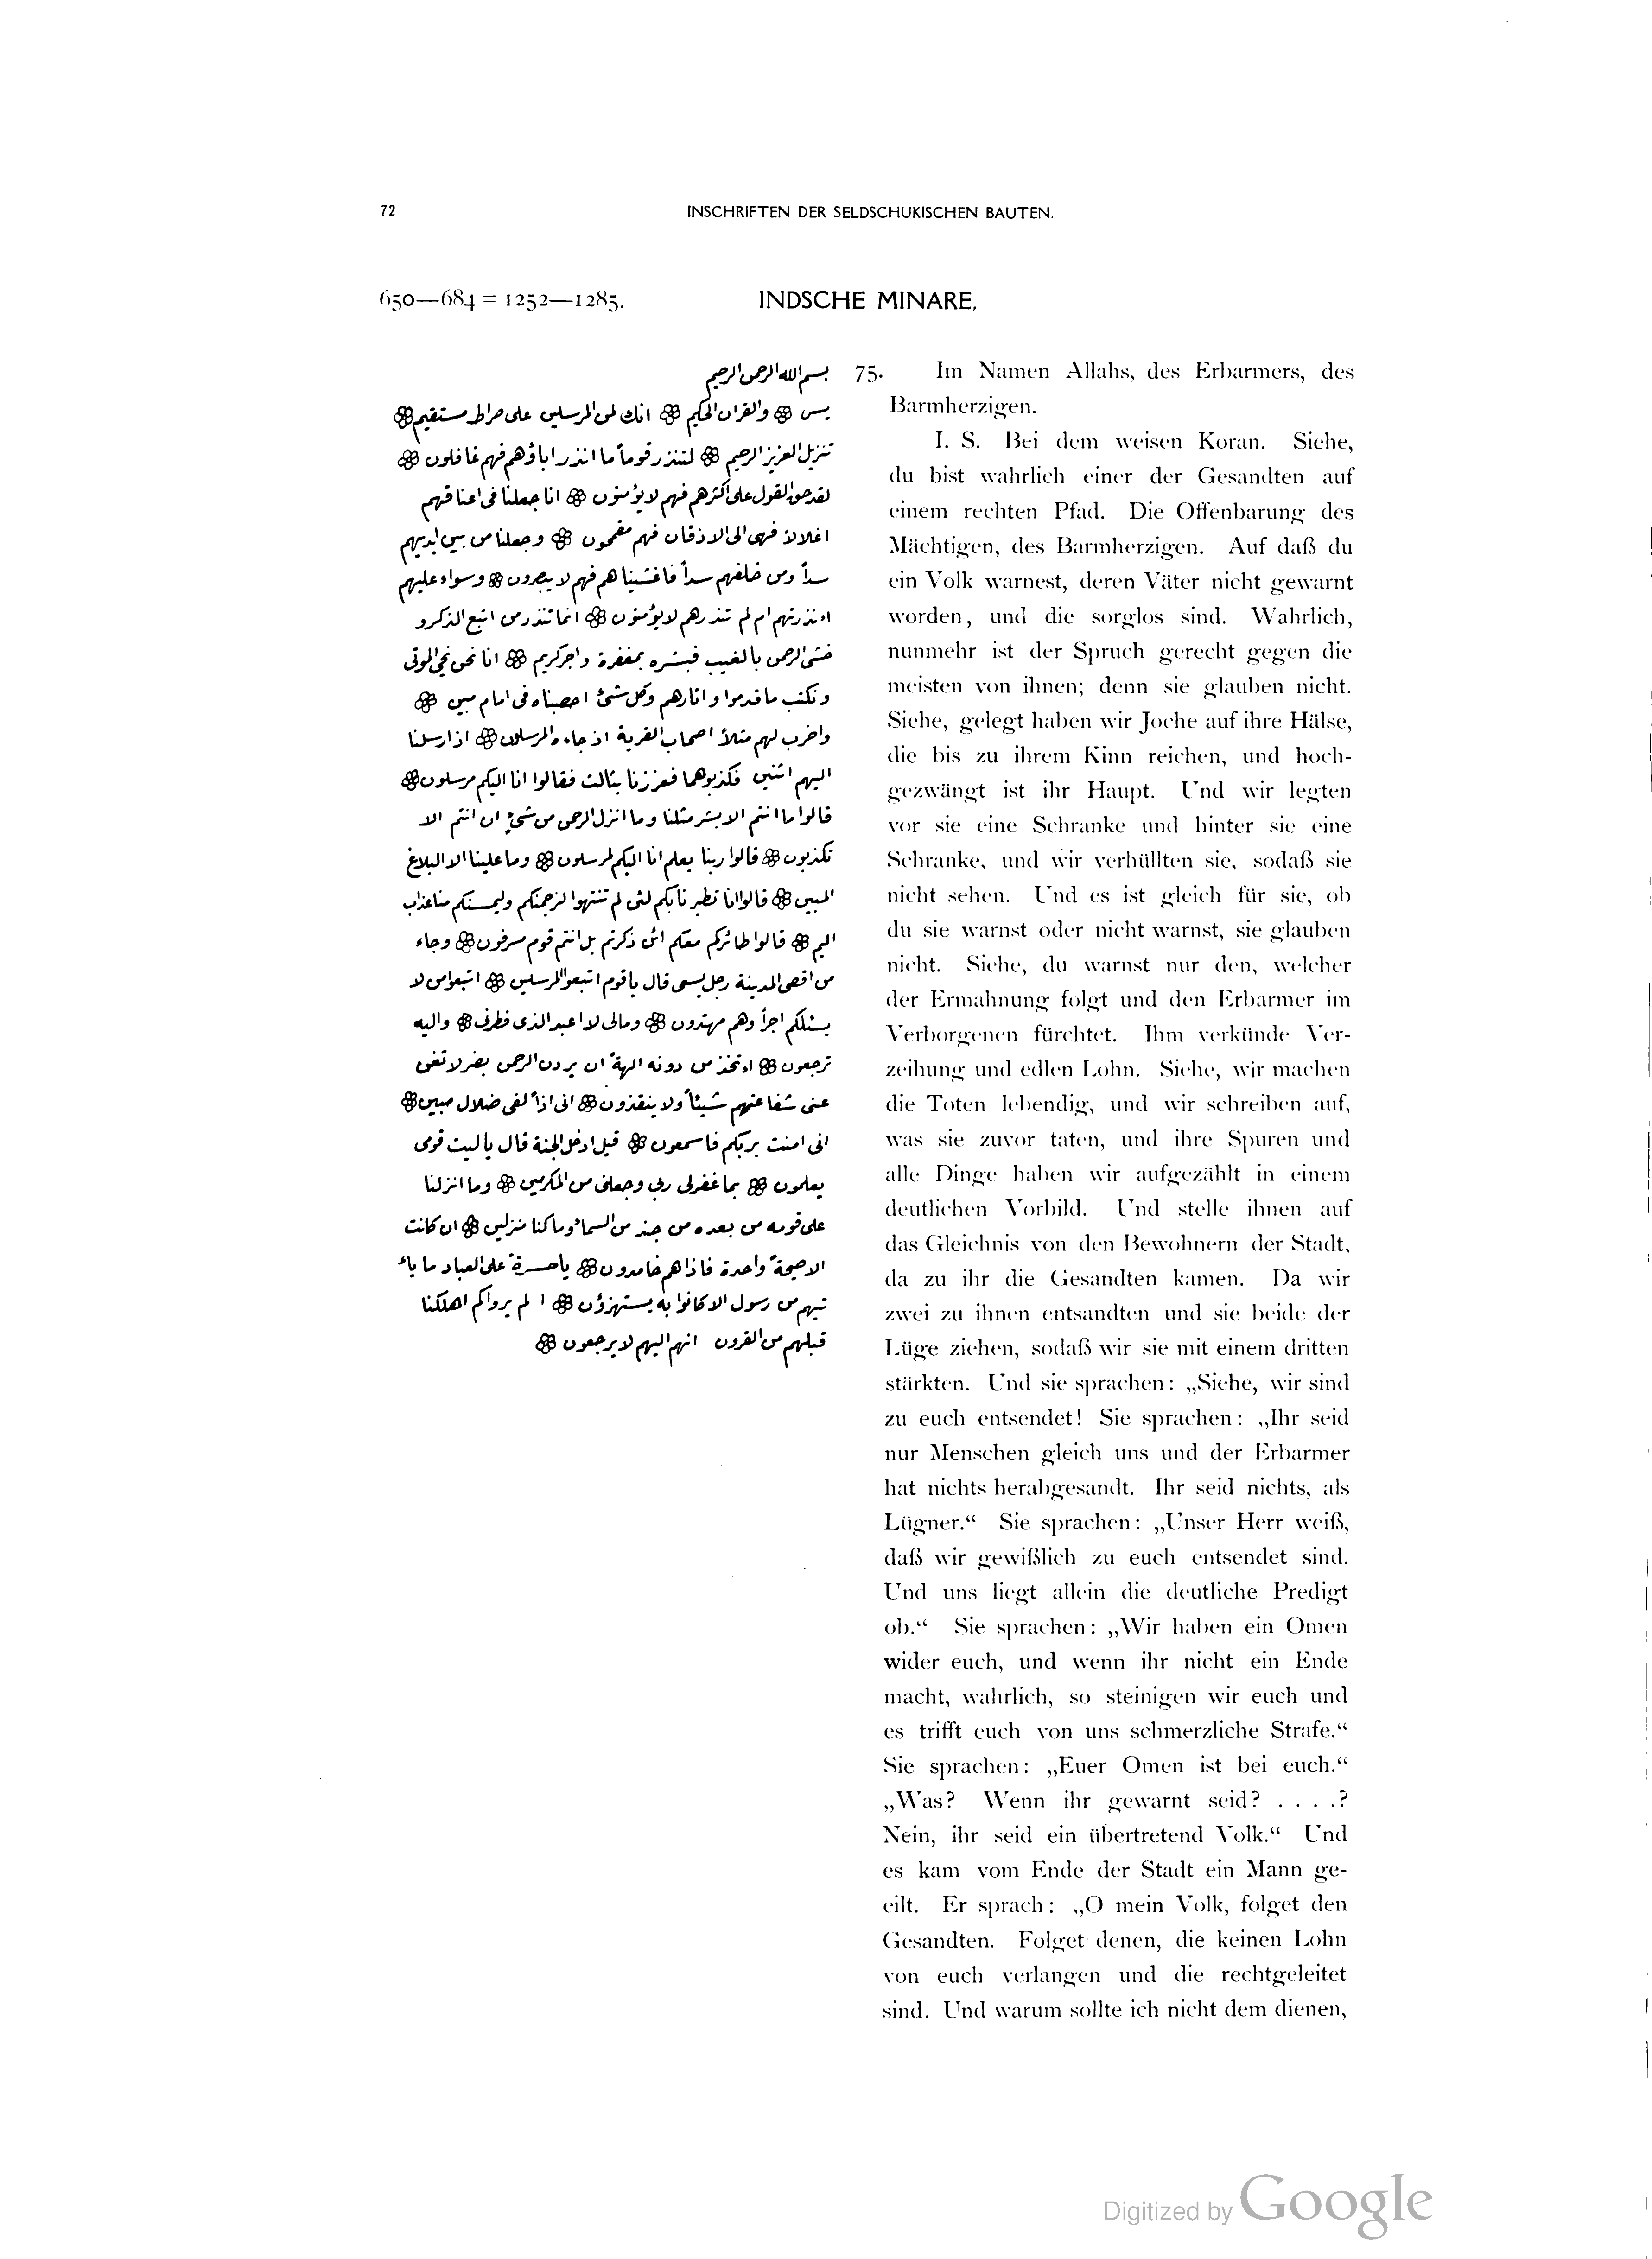 72
INSCHRIFTEN DER SELDSCHUKISCHEN BAUTEN.
650—684 = 1252—1285.
INDSCHE MINARE,
بسم الله الرحمن الرحيم
يس ❁ والقران الحكيم ❁ انك لمن المرسلين على صراط مستقيم ❁
تنزيل العزيز الرحيم ❁ لتنذر قوماً ما انذر اباؤهم فهم غافلون ❁
لقد حق القول على اكثرهم فهم لا يؤمنون ❁ انا جعلنا فى اعناقهم
اغلالاً فهى الى الاذقان فهم مقمحون ❁ وجعلنا من بين ايديهم
سداً ومن خلفهم سداً فاغشيناهم فهم لا يبصرون ❁ وسواء عليهم
اءنذرتهم ام لم تنذرهم لا يؤمنون ❁ انما تنذر من اتبع الذكر و
خشى الرحمن بالغيب فبشره بمغفرة واجر كريم ❁ انا نحن نحي الموتى
ونكتب ما قدموا واثارهم وكل شئ احصيناه فى امام مبين ❁
واضرب لهم مثلاً اصحاب القرية اذ جاءه المرسلون ❁ اذ ارسلنا
اليهم اثنين فكذبوهما فعززنا بثالث فقالوا انا اليكم مرسلون ❁
قالوا ما انتم الا بشر مثلنا وما انزل الرحمن من شئ ان انتم الا
تكذبون ❁ قالوا ربنا يعلم انا اليكم لمرسلون ❁ وما علينا الا البلاغ
المبين ❁ قالوا انا تطيرنا بكم لئن لم تنتهوا لنرجمنكم وليمسنكم منا عذاب
اليم ❁ قالوا طائركم معكم ائن ذكرتم بل انتم قوم مسرفون ❁ وجاء
من اقصى المدينة رجل يسعى قال يا قوم اتبعوا المرسلين ❁ اتبعوا من لا
يسئلكم اجراً وهم مهتدون ❁ ومالى لا اعبد الذى فطرنى ❁ واليه
ترجعون ❁ اءتخذ من دونه الهة ان يردن الرحمن بضر لا تغن
عنى شفاعتهم شيئاً ولا ينقذون ❁ انى اذاً لفى ضلال مبين ❁
انى امنت بربكم فاسمعون ❁ قيل ادخل الجنة قال ياليت قومى
يعلمون ❁ بما غفرلى ربى وجعلنى من المكرمين ❁ وما انزلنا
على قومه من بعده من جند من السماء وما كنا منزلين ❁ ان كانت
الا صيحة واحدة فاذا هم خامدون ❁ ياحسرة على العباد ما ياء
تيهم من رسول الا كانوا به يستهزؤن ❁ ا لم يروا كم اهلكنا
قبلهم من القرون انهم اليهم لا يرجعون ❁
75. Im Namen Allahs, des Erbarmers, des
Barmherzigen.
I. S. Bei dem weisen Koran. Siehe,
du bist wahrlich einer der Gesandten auf
einem rechten Pfad. Die Offenbarung des
Mächtigen, des Barmherzigen. Auf daß du
ein Volk warnest, deren Väter nicht gewarnt
worden, und die sorglos sind. Wahrlich,
nunmehr ist der Spruch gerecht gegen die
meisten von ihnen; denn sie glauben nicht.
Siehe, gelegt haben wir Joche auf ihre Hälse,
die bis zu ihrem Kinn reichen, und hoch-
gezwängt ist ihr Haupt. Und wir legten
vor sie eine Schranke und hinter sie eine
Schranke, und wir verhüllten sie, sodaß sie
nicht sehen. Und es ist gleich für sie, ob
du sie warnst oder nicht warnst, sie glauben
nicht. Siehe, du warnst nur den, welcher
der Ermahnung folgt und den Erbarmer im
Verborgenen fürchtet. Ihm verkünde Ver-
zeihung und edlen Lohn. Siehe, wir machen
die Toten lebendig, und wir schreiben auf,
was sie zuvor taten, und ihre Spuren und
alle Dinge haben wir aufgezählt in einem
deutlichen Vorbild. Und stelle ihnen auf
das Gleichnis von den Bewohnern der Stadt,
da zu ihr die Gesandten kamen. Da wir
zwei zu ihnen entsandten und sie beide der
Lüge ziehen, sodaß wir sie mit einem dritten
stärkten. Und sie sprachen: „Siehe, wir sind
zu euch entsendet! Sie sprachen: „Ihr seid
nur Menschen gleich uns und der Erbarmer
hat nichts herabgesandt. Ihr seid nichts, als
Lügner.“ Sie sprachen: „Unser Herr weiß,
daß wir gewißlich zu euch entsendet sind.
Und uns liegt allein die deutliche Predigt
ob.“ Sie sprachen: „Wir haben ein Omen
wider euch, und wenn ihr nicht ein Ende
macht, wahrlich, so steinigen wir euch und
es trifft euch von uns schmerzliche Strafe.“
Sie sprachen: „Euer Omen ist bei euch.“
„Was? Wenn ihr gewarnt seid? . . . .?
Nein, ihr seid ein übertretend Volk.“ Und
es kam vom Ende der Stadt ein Mann ge-
eilt. Er sprach: „O mein Volk, folget den
Gesandten. Folget denen, die keinen Lohn
von euch verlangen und die rechtgeleitet
sind. Und warum sollte ich nicht dem dienen,
Digitized by Google